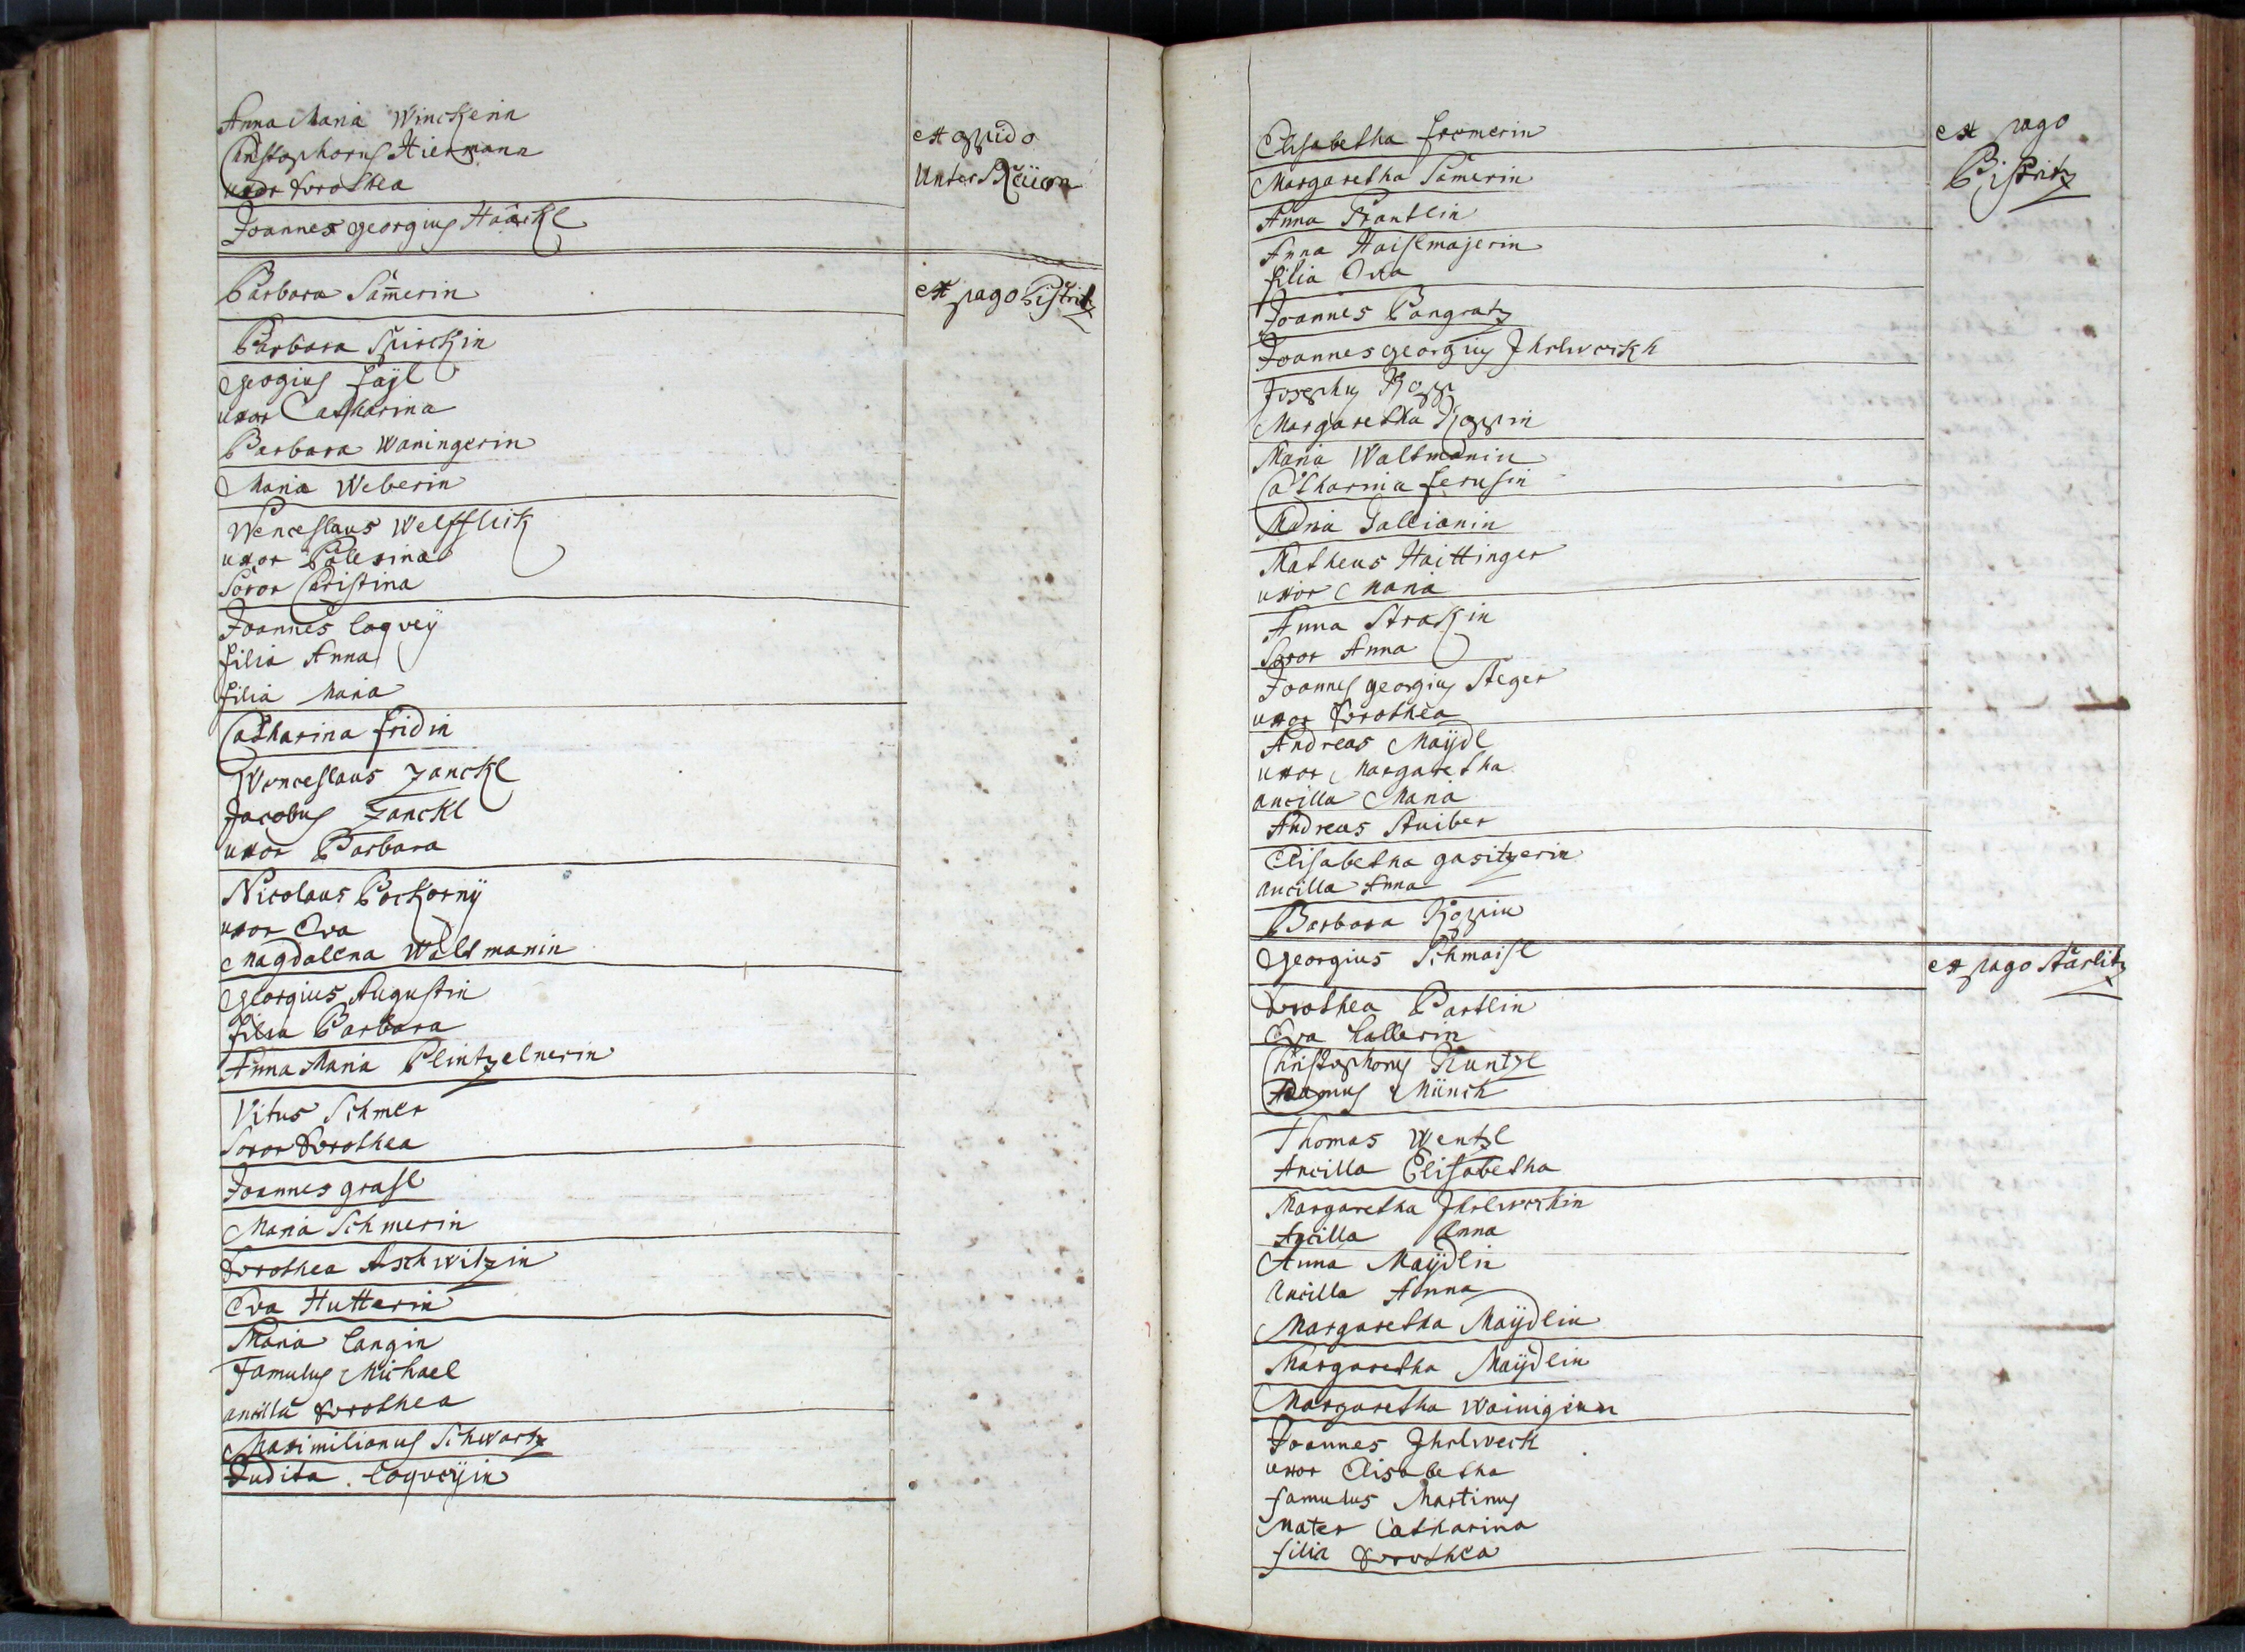 Anna Maria Winckerin
Christophorus Hiermann
uxor Dorothea
Joannes georgius Haackl
ex oppido
Unter
Barbara Sam̄erin
ex pago Pistritz
Barbara Spirckin
Georgius Fayl
uxor Catharina
Barbara Waningerin
Maria Weberin
Wenceslaus Welfflick
uxor
Soror Christina
Joannes Coqveÿ
filia Anna
filia Maria
Catharina Fridin
Wenceslaus Janckl
Jacobus Janckl
uxor Barbara
Nicolaus Pockornÿ
uxor Eva
Magdalena Waltmanin
Georgius Augustin
filia Barbara
Anna Maria Plintzelnerin
Vitus Schmer
Soror Dorothea
Joannes grasl
Maria Schmerin
Dorothea Aschwitzin
Eva Hutterin
Maria Langin
Famulus Michael
ancilla Dorothea
Maximilianus Schwartz
Judita Coqveÿin
Elisabetha Fromerin
ex pago
Pistritz
Margaretha Samerin
Anna Frantlin
Anna Haislmajerin
filia Eva
Joannes Pangratz
Joannes georgius Ihrlweckh
Josephus Kopp
Margaretha Koppin
Maria Waltmanin
Catharina Ferusin
Maria Gallianin
Matheus Haittinger
uxor Maria
Anna Strakin
Soror Anna
Joannes georgius Steger
uxor Dorothea
Andreas Maÿdl
uxor Margaretha
ancilla Maria
Andreas Stuiber
Elisabetha gasitzerin
ancilla Anna
Barbara Koppin
Georgius Schmaisl
ex pago Starlitz
Dorothea Partlin
Eva Hallerin
Christophorus Kuntzl
Adamus Münch
Thomas Wentzl
Ancilla Elisabetha
Margaretha Ihrlweckin
Ancilla Anna
Anna Maÿdlin
Ancilla Anna
Margaretha Maÿdlin
Margaretha Maÿdlin
Margaretha
Joannes Ihrlweck
uxor Elisabetha
famulus Martinus
Mater Catharina
filia Dorothea